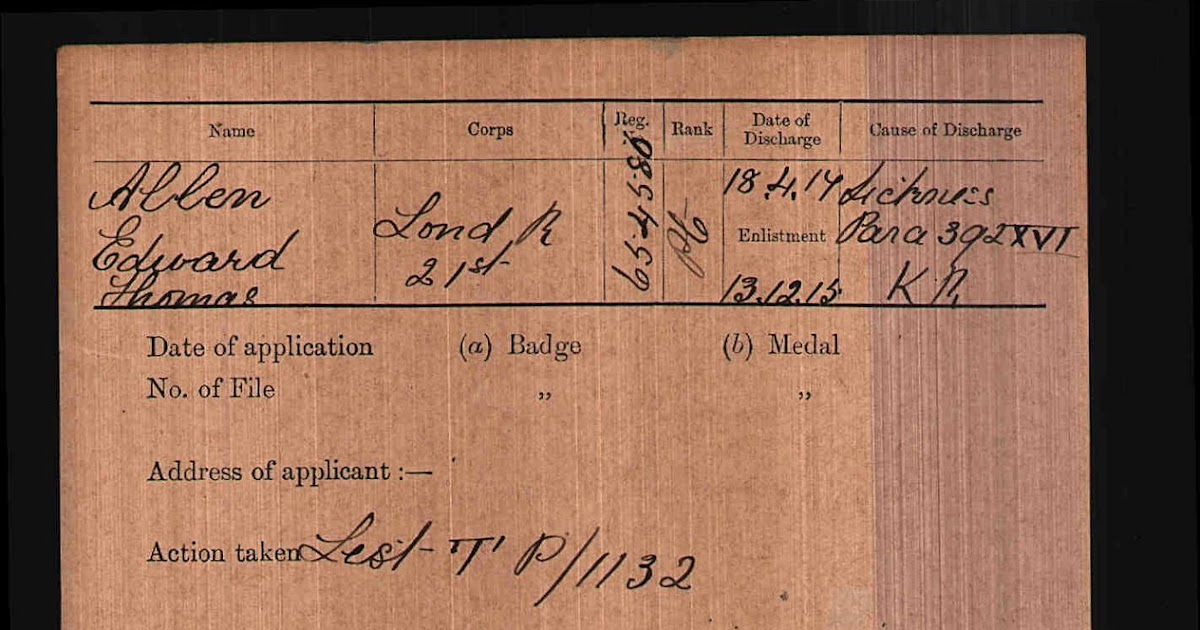 Name Corps Reg. Rank Date of Discharge Cause of Discharge
Allen Lond R 654580 Pte 18.4.17 Sickness
Edward 21st Enlistment Para 392 XVI
Thomas 13.12.15 K R
Date of application (a) Badge (b) Medal
No. of File „ „
Address of applicant :—
Action taken List "T" P/1132